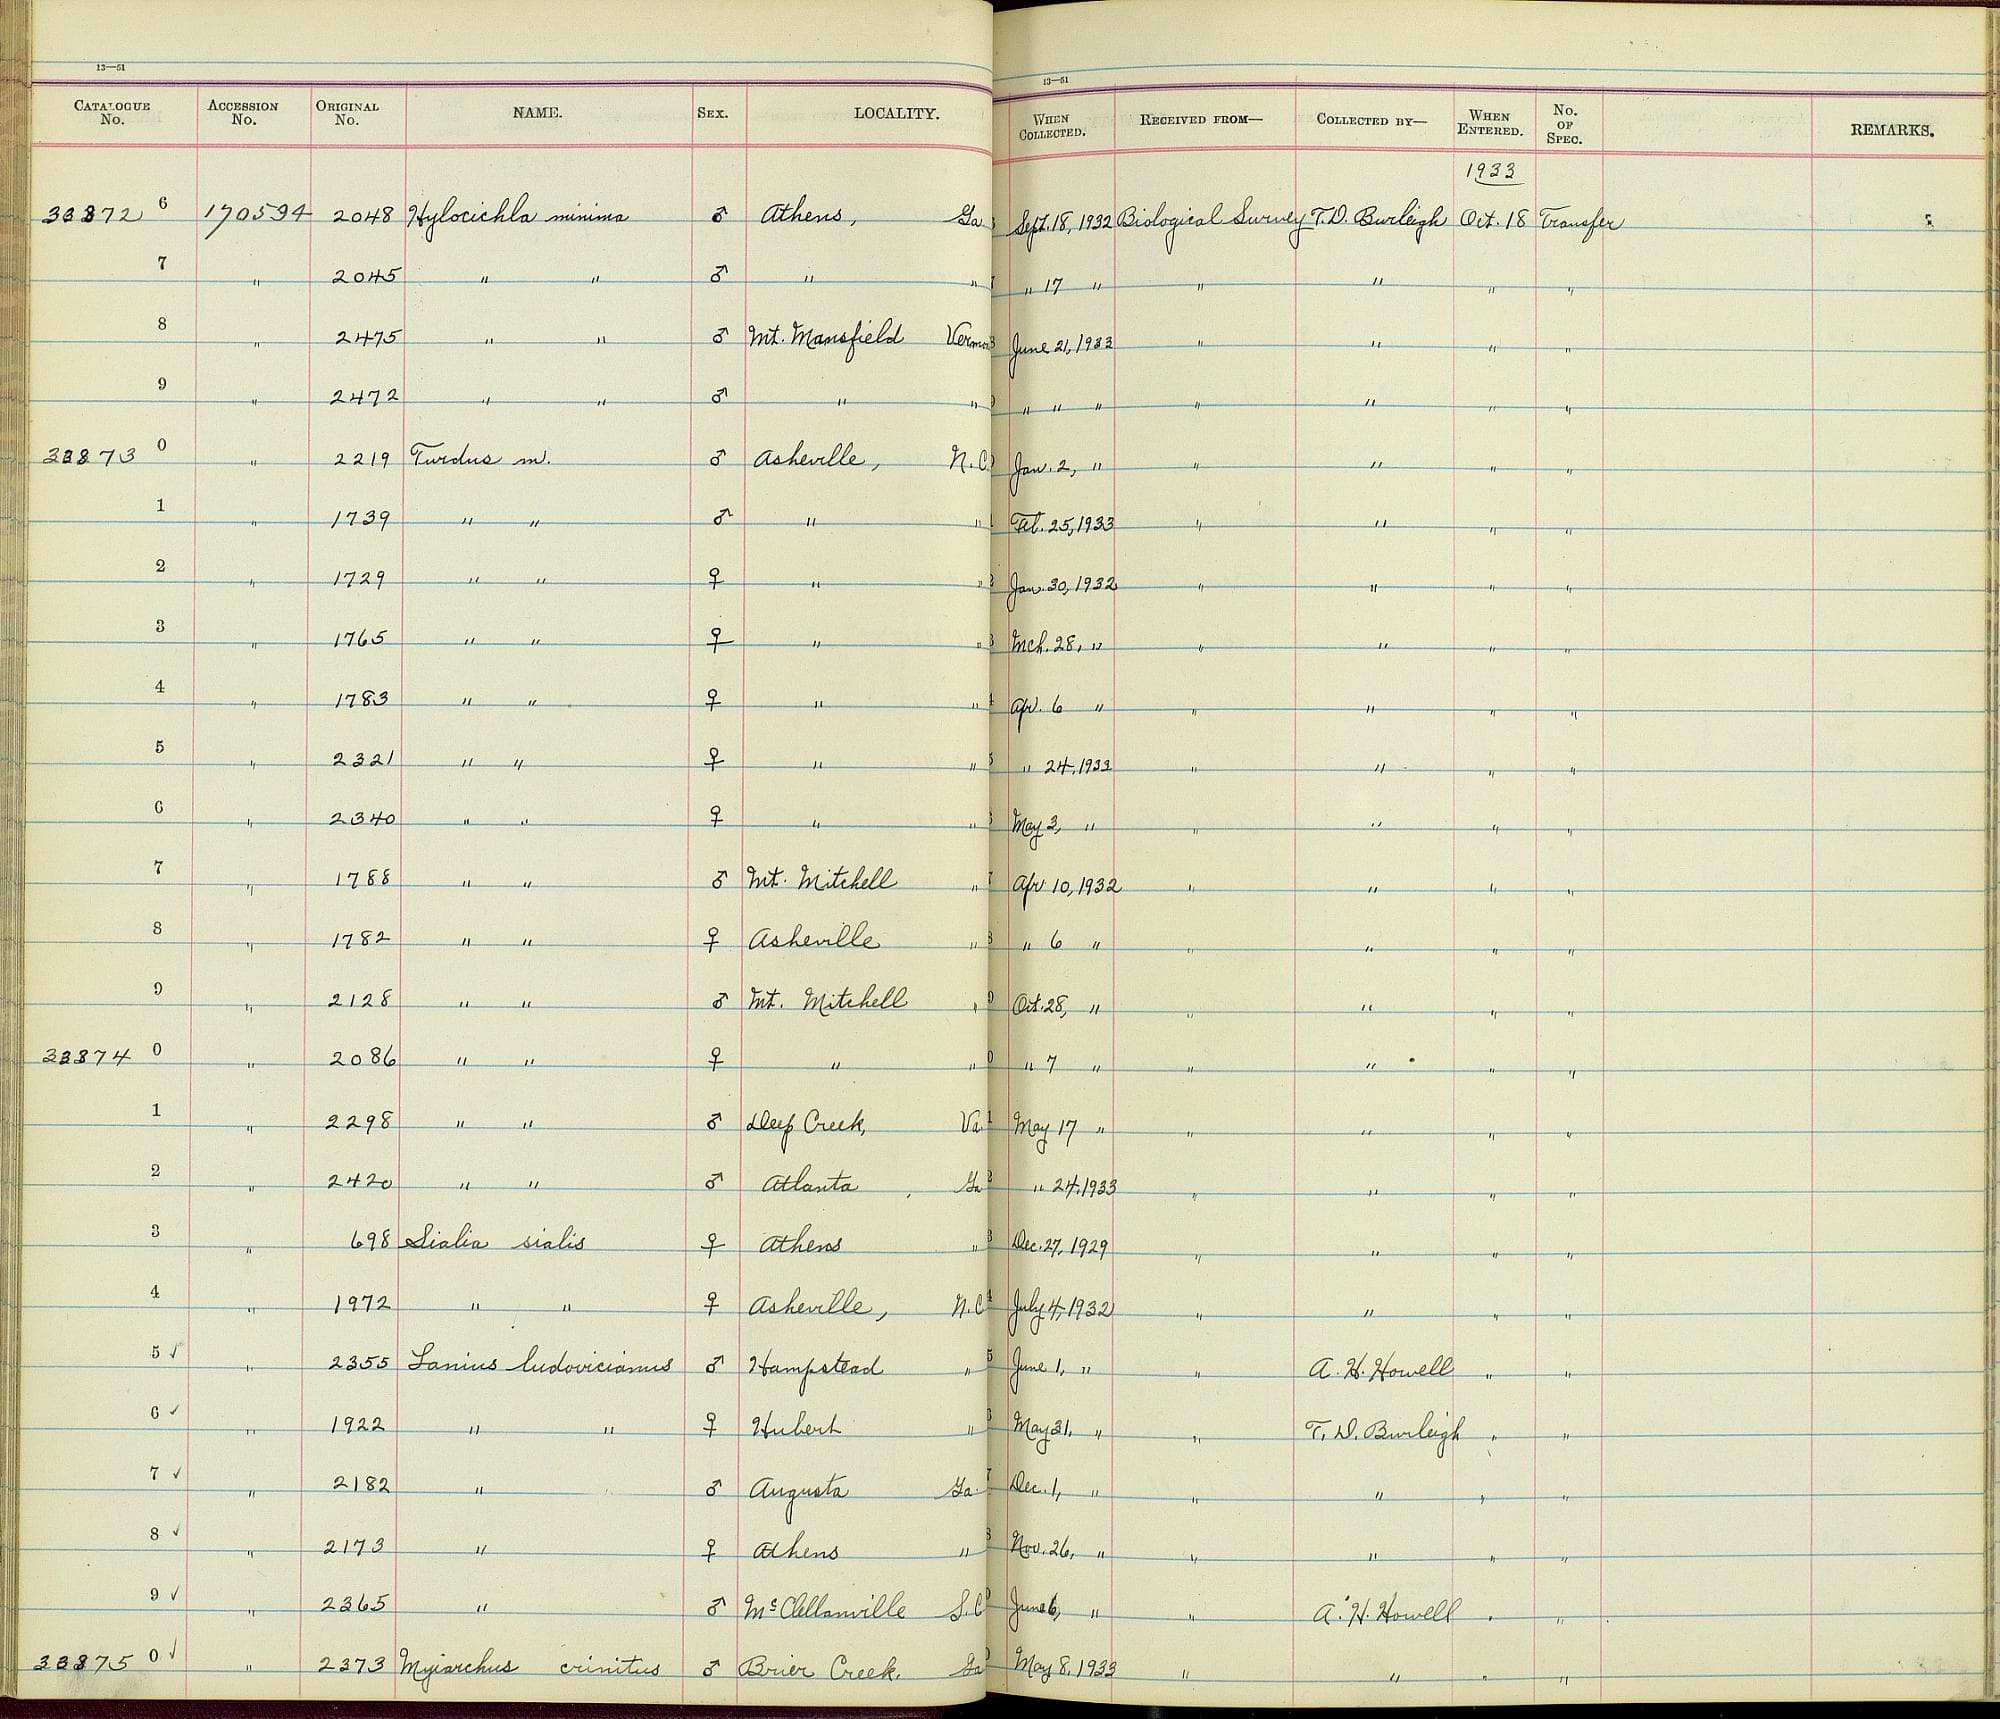 13—51 13—51
CATALOGUE No. ACCESSION No. ORIGINAL No. NAME. SEX. LOCALITY. WHEN COLLECTED. RECEIVED FROM— COLLECTED BY— WHEN ENTERED. No. OF SPEC. REMARKS.
1933
33872 6 170594 2048 Hylocichla minima ♂ Athens, Ga. Sept. 18, 1932 Biological Survey T.D. Burleigh Oct. 18 Transfer
7 " 2045 " " ♂ " " " 17 " " " " "
8 " 2475 " " ♂ Mt. Mansfield Vermon June 21, 1933 " " " "
9 " 2472 " " ♂ " " " " " " " " "
33873 0 " 2219 Turdus m. ♂ Asheville, N.C. Jan. 2, " " " " "
1 " 1739 " " ♂ " " Feb. 25, 1933 " " " "
2 " 1729 " " ♀ " " Jan. 30, 1932 " " " "
3 " 1765 " " ♀ " " Mch. 28, " " " " "
4 " 1783 " " ♀ " " Apr. 6 " " " " "
5 " 2321 " " ♀ " " " 24, 1933 " " " "
6 " 2340 " " ♀ " " May 3, " " " " "
7 " 1788 " " ♂ Mt. Mitchell " Apr 10, 1932 " " " "
8 " 1782 " " ♀ Asheville " " 6 " " " " "
9 " 2128 " " ♂ Mt. Mitchell " Oct. 28, " " " " "
33874 0 " 2086 " " ♀ " " " 7 " " " " "
1 " 2298 " " ♂ Deep Creek, Va. May 17 " " " " "
2 " 2420 " " ♂ Atlanta, Ga " 24, 1933 " " " "
3 " 698 Sialia sialis ♀ Athens " Dec. 27, 1929 " " " "
4 " 1972 " " ♀ Asheville, N.C July 4, 1932 " " " "
5 ✓ " 2355 Lanius ludovicianus ♂ Hampstead " June 1, " " A. H. Howell " "
6 ✓ " 1922 " " ♀ Hubert " May 31, " " T. D. Burleigh " "
7 ✓ " 2182 " ♂ Augusta Ga. Dec. 1, " " " " "
8 ✓ " 2173 " ♀ Athens " Nov. 26, " " " " "
9 ✓ " 2365 " ♂ McClellanville S.C June 6, " " A. H. Howell " "
33875 0 ✓ " 2373 Myiarchus crinitus ♂ Brier Creek, Ga May 8, 1933 " " " "